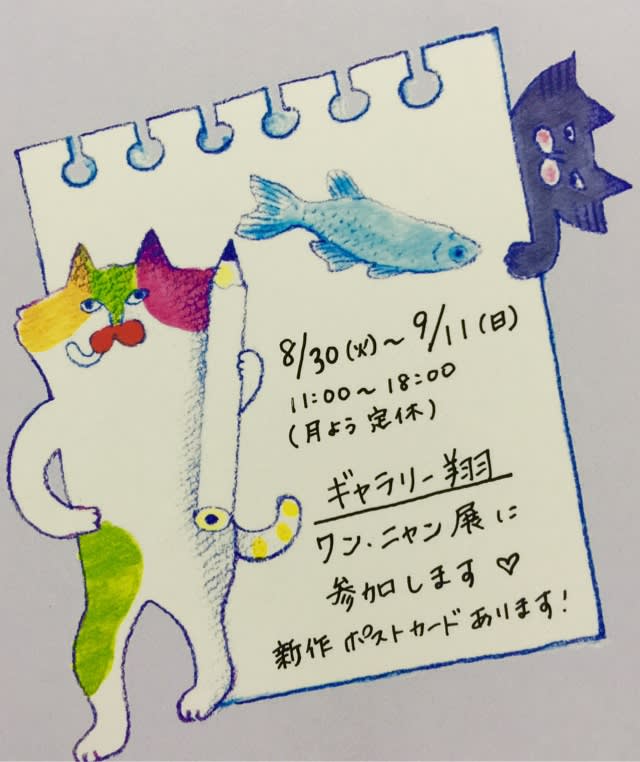 8/30(火)~9/11(日)
11:00~18:00
(月よう定休)
ギャラリー翔
ワン・ニャン展に
参加します♡
新作ポストカードあります!